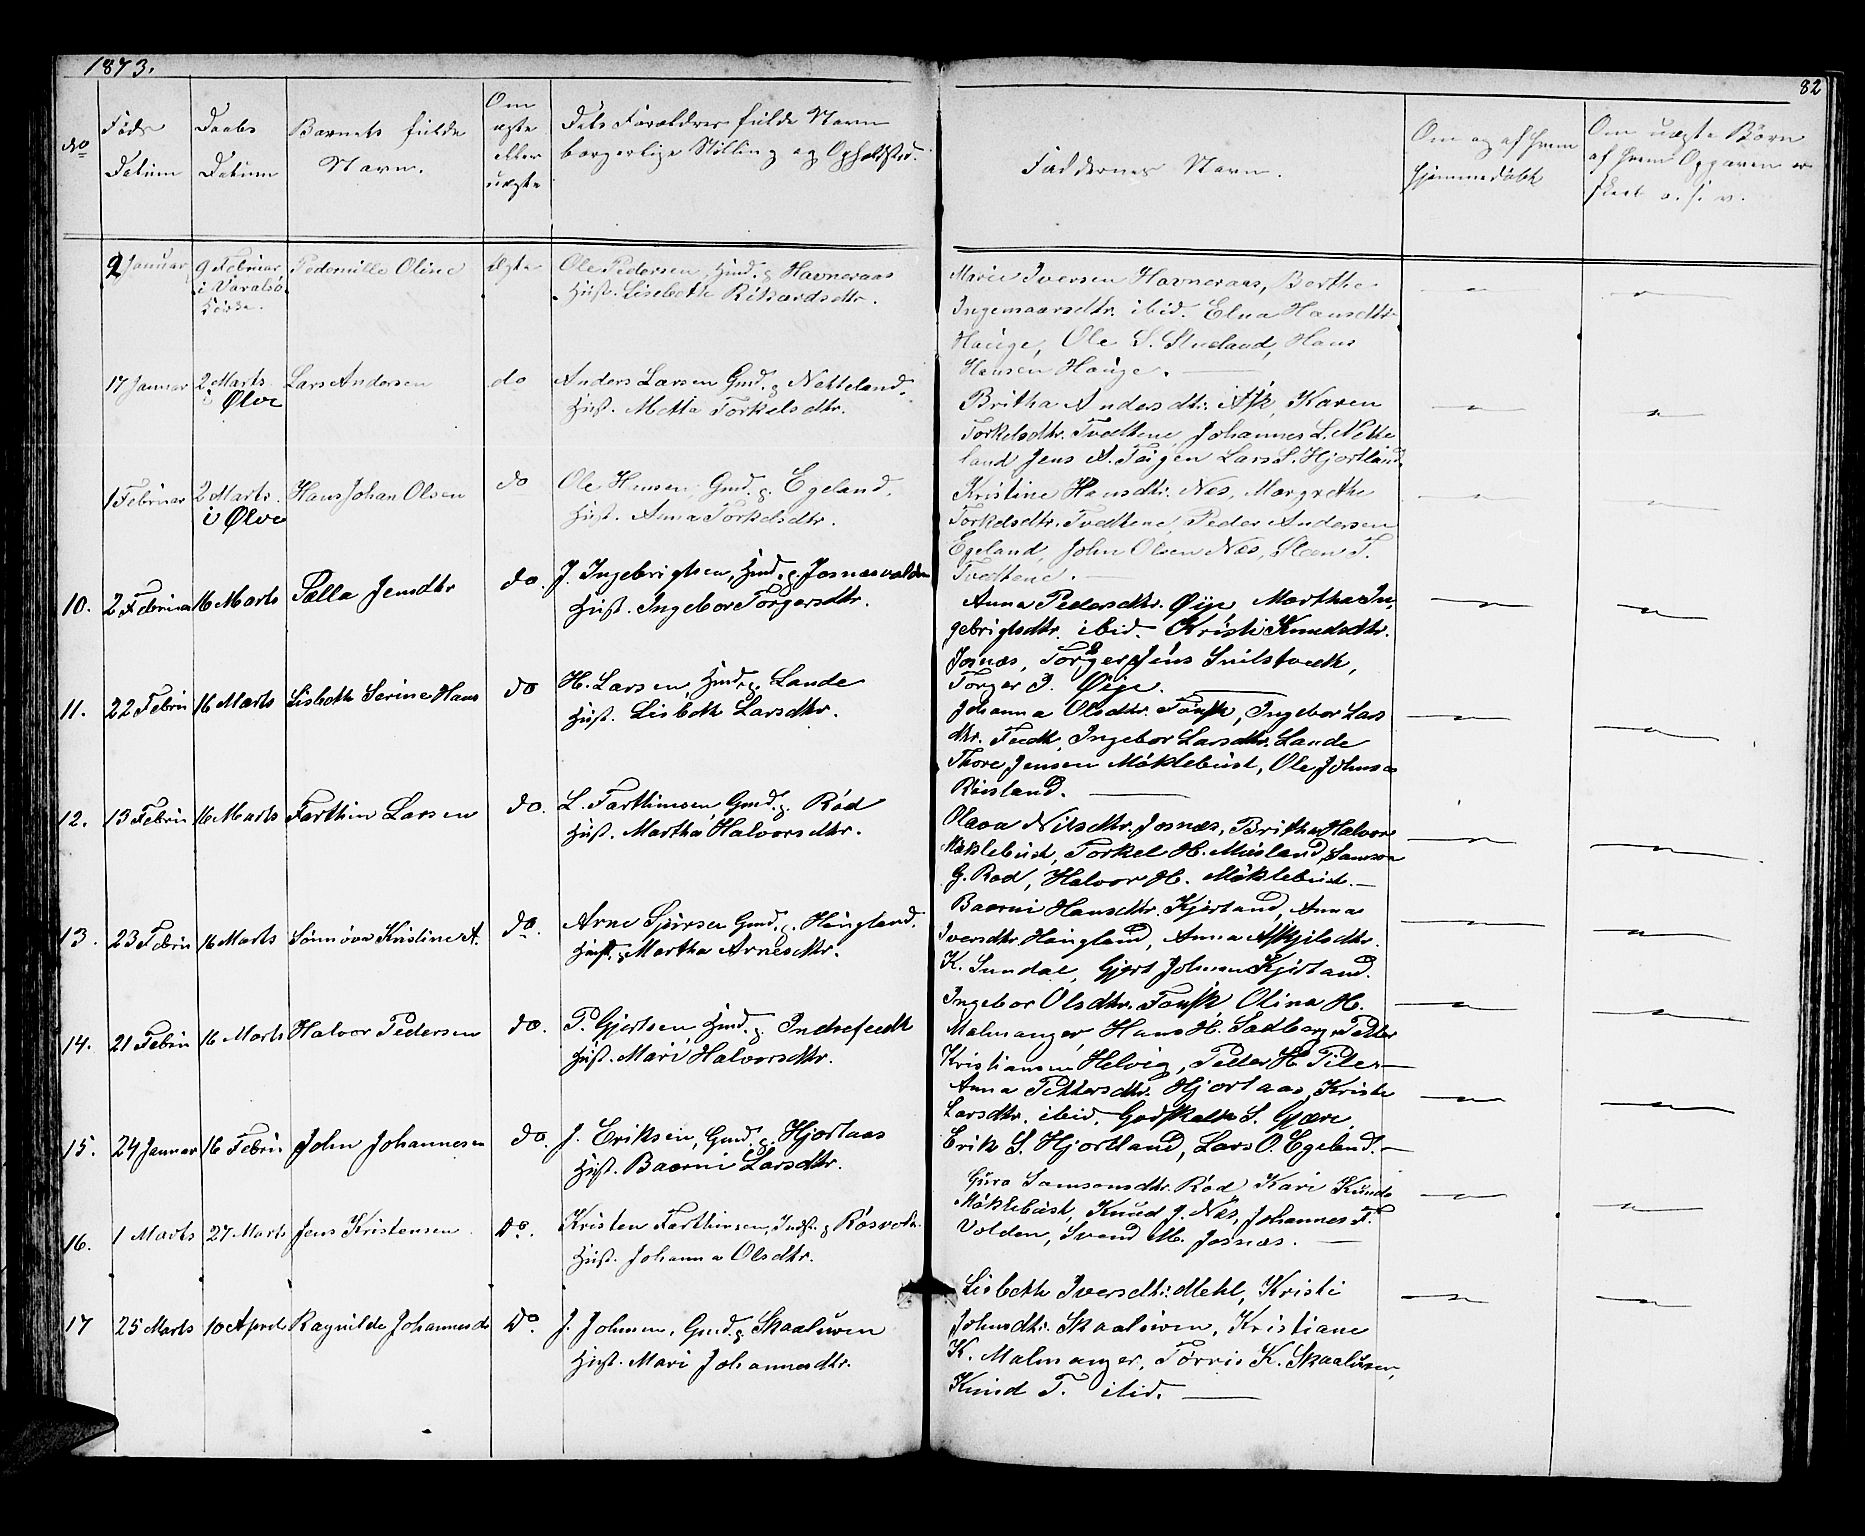 1873.
82
No
Føds
Datum
Daabs
Datum
Barnets fulde
Navn.
Om
ægte
eller
uægte
Dets Forældres fulde Navn
borgerlige Stilling og Opholdsted.
Faddernes Navn.
Om og af hvem
hjemmedøbt
Om uægte Børn
af hvem Opgaven er
skeet o. s. v.
2 Januar
9 Februar
i Varalsø
Kirke.
Pedernille Oline
Ægte
Ole Pedersen, Hmd. g. Havneraas
Hust. Lisebeth Rikardsdtr.
Marie Iversen Havneraas, Berthe
Ingemaarsdtr. ibid. Elna Hansdtr.
Hauge, Ole S. Stueland, Hans
Hansen Hauge.
17 Januar
2 Marts
i Ølve
Lars Andersen
do
Anders Larsen Gmd. g. Netteland.
Hust. Metta Torkelsdtr.
Britha Andersdtr. Ask, Karen
Torkelsdtr. Tvedtene, Johannes L. Nette
land Jens A. Teigen Lars S. Hjortland
1 Februar
2 Marts
i Ølve
Hans Johan Olsen
do
Ole Hansen, Gmd. g. Egeland.
Hust. Anna Torkelsdtr.
Kristine Hansdtr. Næs, Margrethe
Torkelsdtr. Tvedtene, Peder Andersen
Egeland, John Olsen Næs, Sten T.
Tvedtene.
10.
2 Februar
16 Marts
Pælla Jensdtr
do.
J. Ingebrigtsen, Hmd. g. Josnæsvalden
Hust. Ingebor Torgersdtr.
Anna Pedersdtr. Øije, Martha In,
gebrigtsdtr. ibid. Kristi Knudsdtr.
Josnæs, Torger Jens Snilstvedt,
Torger J. Øije.
11.
22 Febru
16 Marts
Lisbeth Serine Hans
do
H. Larsen, Hmd. g. Lande
Hust. Lisbeth Larsdtr.
Johanna Olsdtr. Fousk, Ingebor Lars
dtr. Fedt, Ingebor Larsdtr. Lande
Thore Jensen Møklebust, Ole Johnsen
Røisland.
12.
13 Febru
16 Marts
Farthin Larsen
do.
L. Farthinsen, Gmd. g. Rød
Hust. Martha Halvorsdtr.
Olava Nilsdtr. Josnæs, Britha Halvors
Møklebust, Torkel H. Musland, Samson
G. Rød, Halvor H. Møklebust.
13.
23 Febru
16 Marts
Sønnøva Kristine A.
do.
Arne Sjursen Gmd. g. Haugland.
Hust. Martha Arnesdtr.
Baarni Hansdtr. Kjerland, Anna
Iversdtr. Haugland, Anna Askjilsdtr.
K. Sundal, Gjert Johnsen Kjerland.
14.
21 Febru
16 Marts
Halvor Pedersen
do.
P. Gjertsen, Hmd. g. Indrefedt
Hust. Mari Halvorsdtr.
Ingebor Olsdtr. Fousk, Olina H.
Malmanger, Hans H. Sadberg, Petter
Kristiansen Helvig, Peder H. Tiler
15.
24 Januar
16 Febru
John Johannesen
do.
J. Eriksen, Gmd. g. Hjortaas
Hust. Baarni Larsdtr.
Anna Pettersdtr. Hjortaas, Kristi
Larsdtr. ibid, Godskalk S. Gjære,
Erik S. Hjortland, Lars O. Egeland.
16.
1 Marts
27 Marts
Jens Kristensen
Do.
Kristen Farthinsen, Indst. g. Røsvok.
Hust. Johanna Olsdtr.
Guro Samsonsdtr. Rød Kari Knuds
Møklebust, Knud J. Næs, Johannes F.
Volden, Svend M. Josnæs.
17
25 Marts
10 April
Ragnilde Johannesd
Do.
J. Johnsen, Gmd. g. Skaaluren
Hust. Mari Johannesdtr.
Lisbeth Iversdtr. Mehl, Kristi
Johnsdtr. Skaaluren, Kristiane
K. Malmanger, Tørris K. Skaaluren,
Knud T. ibid.